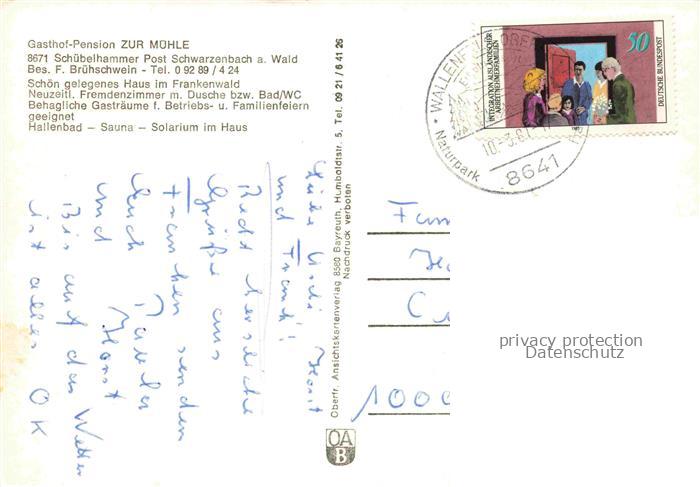 Gasthof-Pension ZUR MÜHLE
8671 Schübelhammer Post Schwarzenbach a. Wald
Bes. F. Brühschwein - Tel. 0 92 89 / 4 24
Schön gelegenes Haus im Frankenwald
Neuzeitl. Fremdenzimmer m. Dusche bzw. Bad/WC
Behagliche Gasträume f. Betriebs- u. Familienfeiern
geeignet
Hallenbad – Sauna – Solarium im Haus
und Frank!
Recht herzliche
Grüße aus
Franken senden
Euch
und Horst
Bis auf das Wetter
ist alles OK
Oberfr. Ansichtskartenverlag 8580 Bayreuth, Humboldtstr. 5, Tel. 09 21 / 6 41 26
Nachdruck verboten
OA
B
INTEGRATION AUSLÄNDISCHER
ARBEITNEHMERFAMILIEN
50
DEUTSCHE BUNDESPOST
Naturpark
8641
Fam
1000
privacy protection
Datenschutz